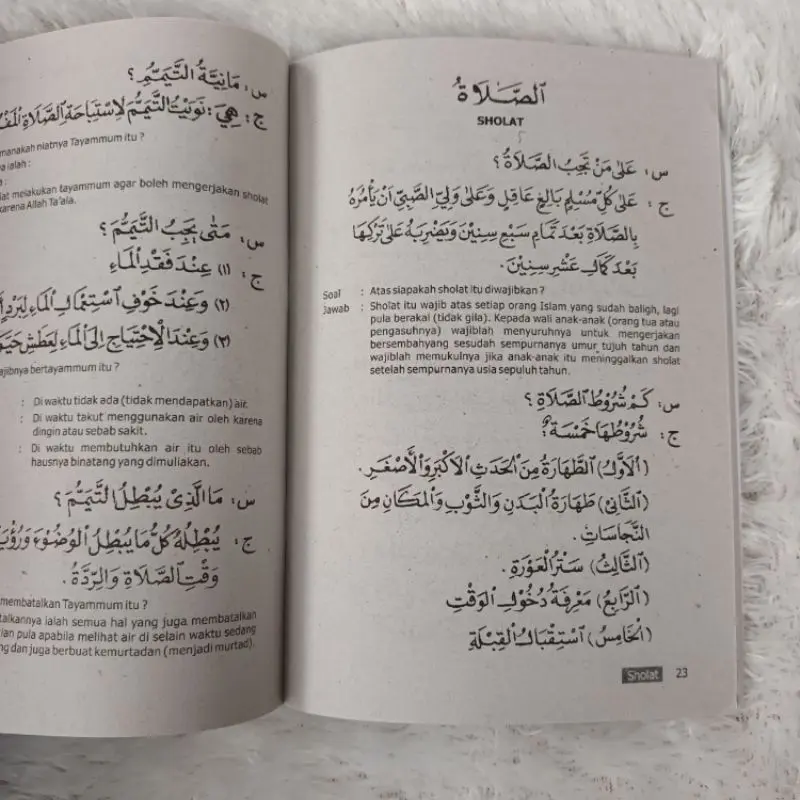 س : مَانِيَّةُ التَّيَمُّمِ ؟
ج : هِيَ : نَوَيْتُ التَّيَمُّمَ لِاسْتِبَاحَةِ الصَّلَاةِ
manakah niatnya Tayammum itu ?
ialah :
melakukan tayammum agar boleh mengerjakan sholat
karena Allah Ta'ala.
س : مَتَى يَجِبُ التَّيَمُّمُ ؟
ج : (١) عِنْدَ فَقْدِ الْمَاءِ
(٢) وَعِنْدَ خَوْفِ اسْتِعْمَالِ الْمَاءِ
(٣) وَعِنْدَ الْاِحْتِيَاجِ اِلَى الْمَاءِ لِعَطَشِ
ajibnya bertayammum itu ?
: Di waktu tidak ada (tidak mendapatkan) air.
: Di waktu takut menggunakan air oleh karena
dingin atau sebab sakit.
: Di waktu membutuhkan air itu oleh sebab
hausnya binatang yang dimuliakan.
س : مَا الَّذِيْ يُبْطِلُ التَّيَمُّمَ ؟
ج : يُبْطِلُهُ كُلُّ مَا يُبْطِلُ الْوُضُوْءَ
وَقْتِ الصَّلَاةِ وَالرِّدَّةُ .
membatalkan Tayammum itu ?
talkannya ialah semua hal yang juga membatalkan
ian pula apabila melihat air di selain waktu sedang
ng dan juga berbuat kemurtadan (menjadi murtad).
اَلصَّلَاةُ
SHOLAT
س : عَلَى مَنْ تَجِبُ الصَّلَاةُ ؟
ج : عَلَى كُلِّ مُسْلِمٍ بَالِغٍ عَاقِلٍ وَعَلَى وَلِيِّ الصَّبِيِّ اَنْ يَأْمُرَهُ
بِالصَّلَاةِ بَعْدَ تَمَامِ سَبْعِ سِنِيْنَ وَيَضْرِبَهُ عَلَى تَرْكِهَا
بَعْدَ كَمَالِ عَشْرِ سِنِيْنَ .
Soal : Atas siapakah sholat itu diwajibkan ?
Jawab : Sholat itu wajib atas setiap orang Islam yang sudah baligh, lagi
pula berakal (tidak gila). Kepada wali anak-anak (orang tua atau
pengasuhnya) wajiblah menyuruhnya untuk mengerjakan
bersembahyang sesudah sempurnanya umur tujuh tahun dan
wajiblah memukulnya jika anak-anak itu meninggalkan sholat
setelah sempurnanya usia sepuluh tahun.
س : كَمْ شُرُوْطُ الصَّلَاةِ ؟
ج : شُرُوْطُهَا خَمْسَةٌ :
(اَلْاَوَّلُ) اَلطَّهَارَةُ مِنَ الْحَدَثِ الْاَكْبَرِ وَالْاَصْغَرِ .
(اَلثَّانِيْ) طَهَارَةُ الْبَدَنِ وَالثَّوْبِ وَالْمَكَانِ مِنَ
النَّجَاسَاتِ .
(اَلثَّالِثُ) سَتْرُ الْعَوْرَةِ .
(اَلرَّابِعُ) مَعْرِفَةُ دُخُوْلِ الْوَقْتِ
(اَلْخَامِسُ) اسْتِقْبَالُ الْقِبْلَةِ
Sholat 23